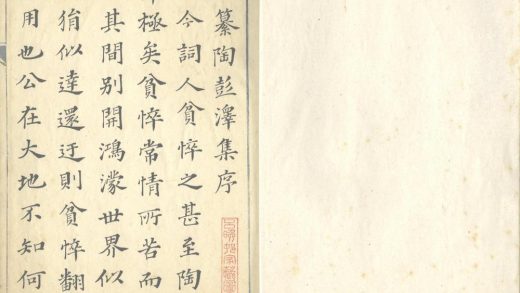 纂陶彭澤集序
今詞人貧悴之甚至陶
極矣貧悴常情所苦而
其間别開鴻濛世界似
狷似達還迂則貧悴翻
用也公在大地不知何